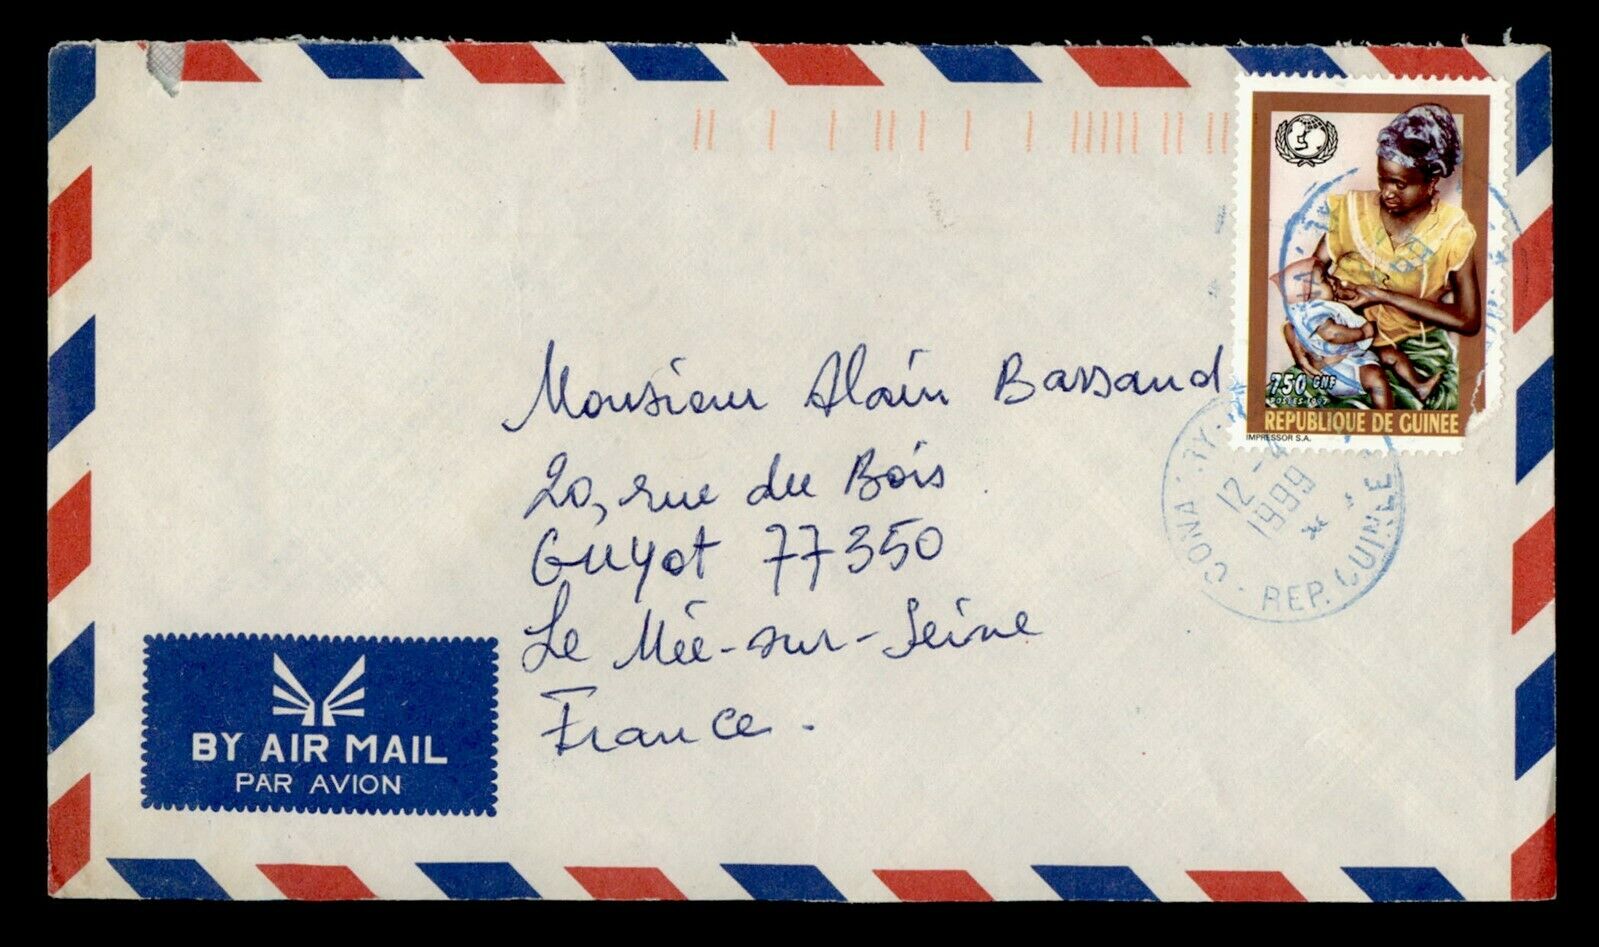 750 GNF
POSTES 1997
REPUBLIQUE DE GUINEE
IMPRESSOR S.A.
Monsieur Alain Bassand
20, rue du Bois
Guyot 77350
Le Mée-sur-Seine
France.
12-4
1999
REP. GUINEE
BY AIR MAIL
PAR AVION